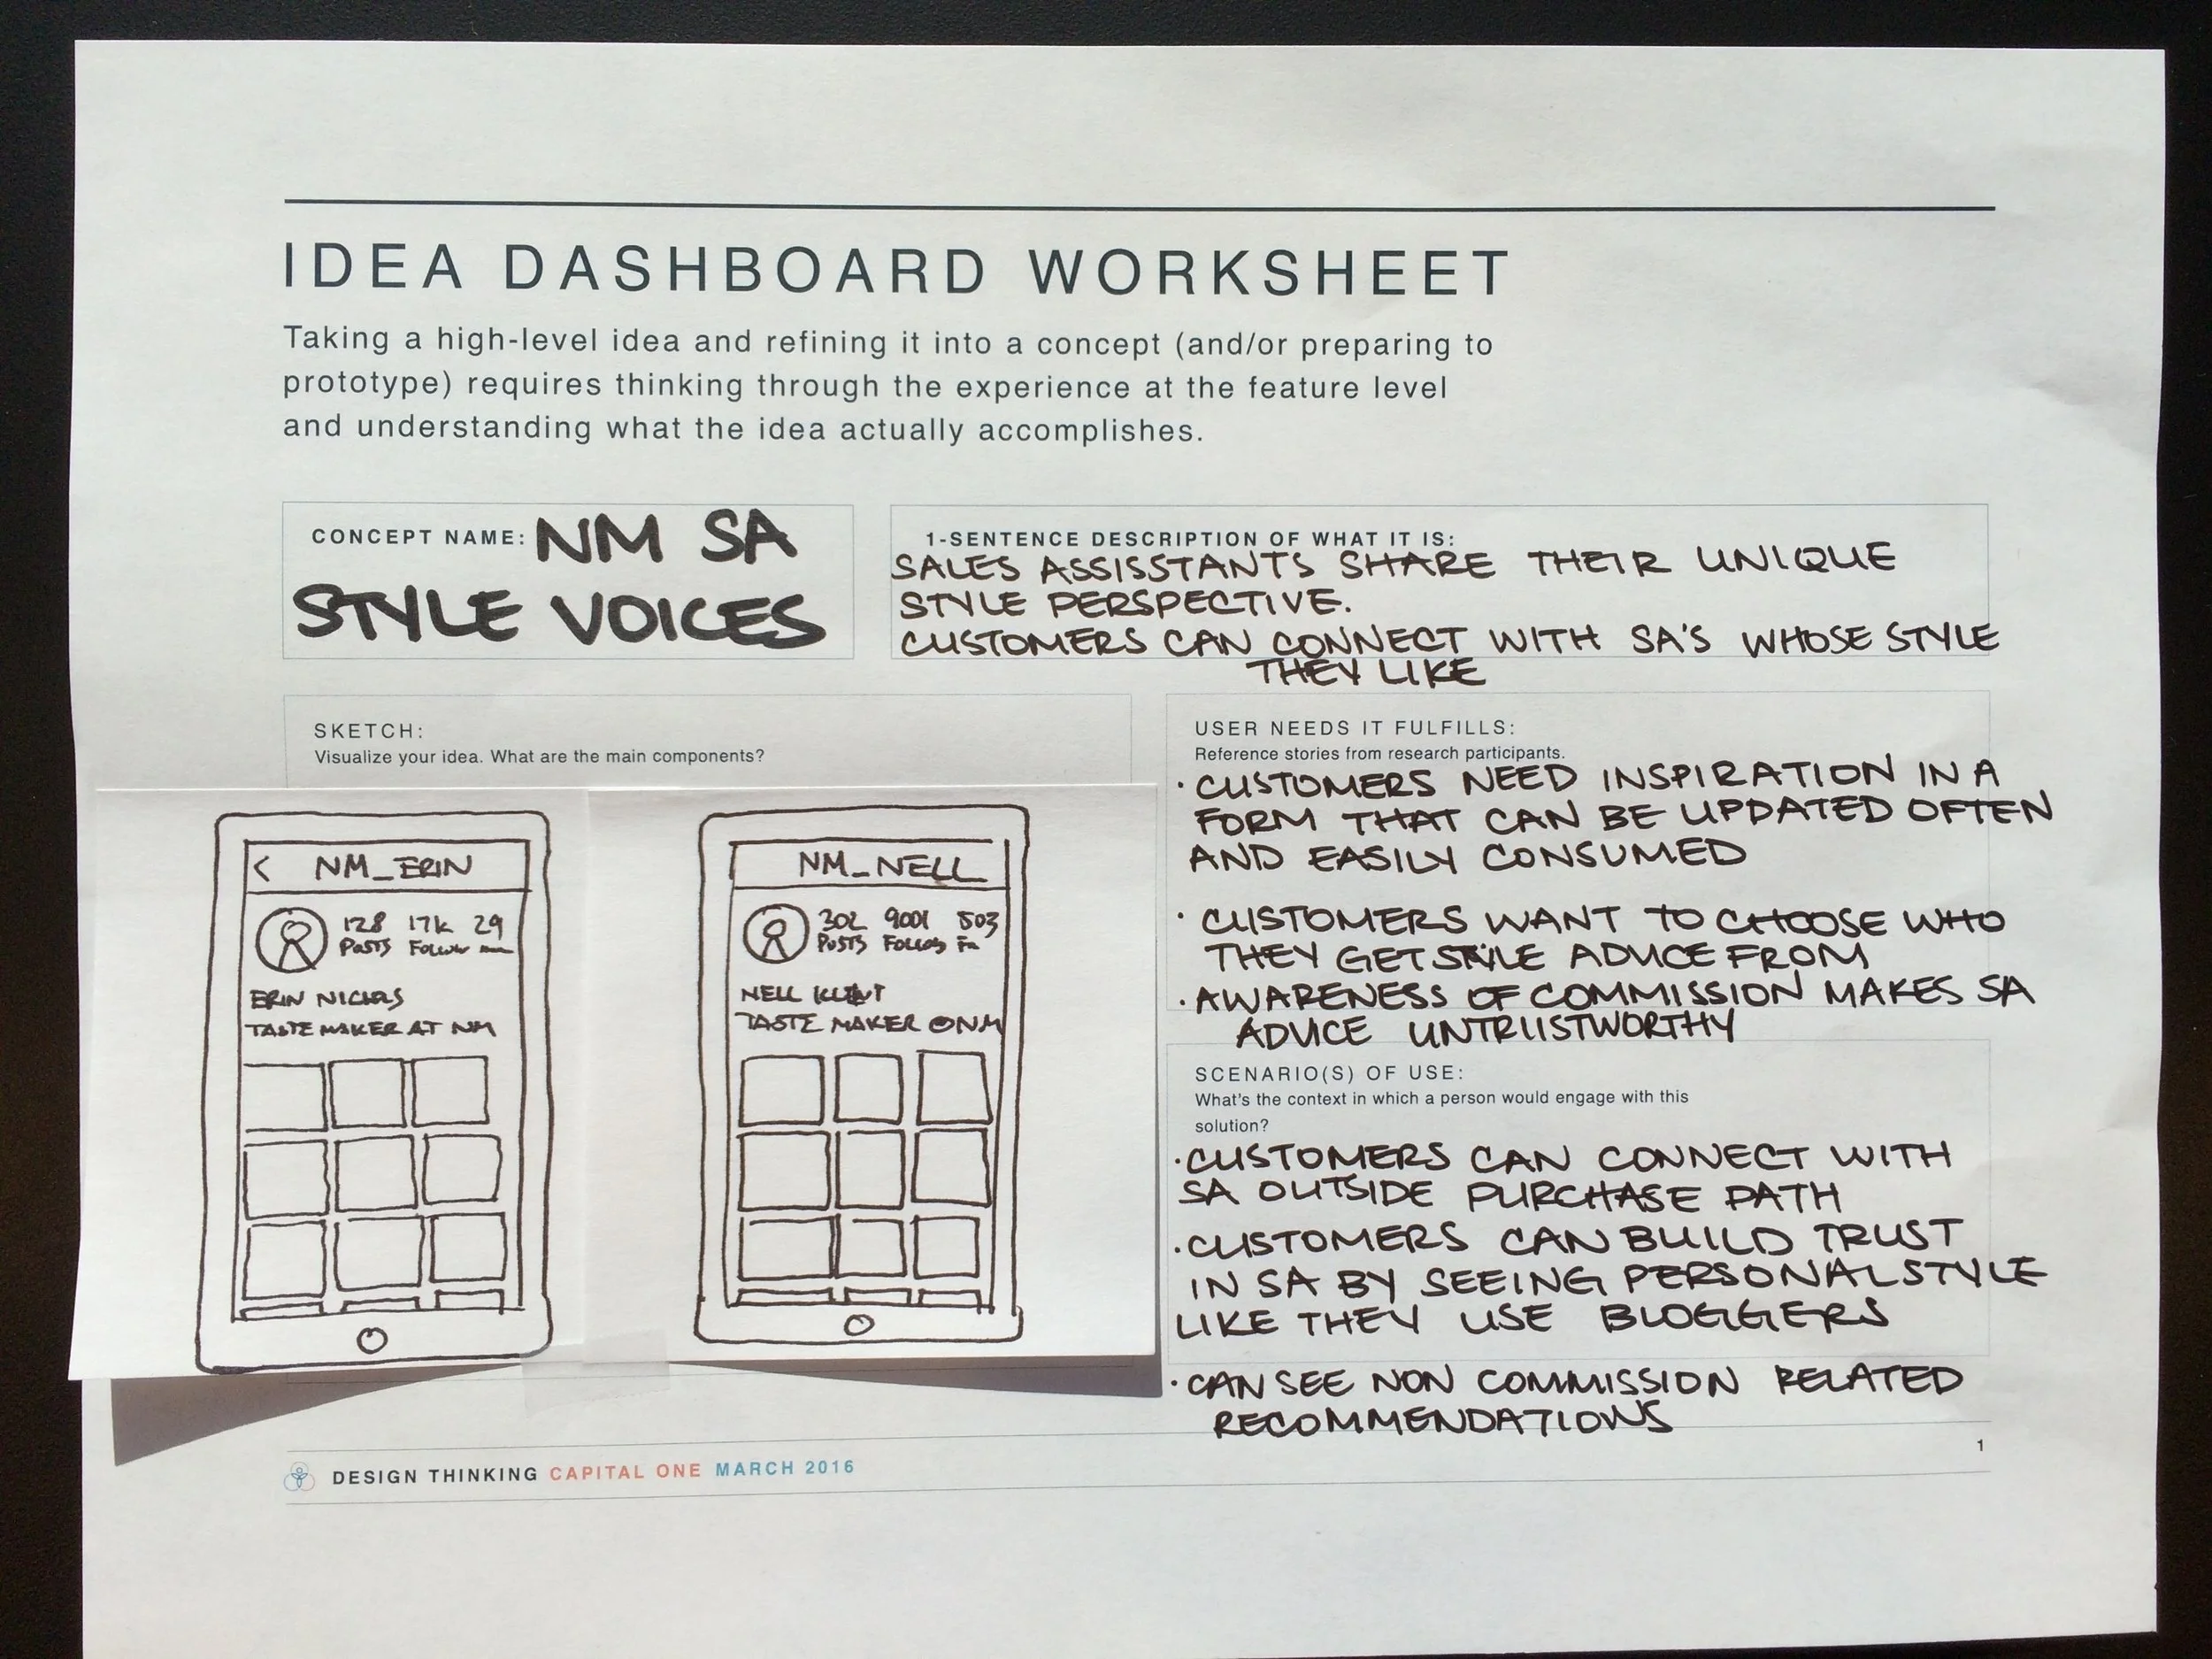 IDEA DASHBOARD WORKSHEET
Taking a high-level idea and refining it into a concept (and/or preparing to
prototype) requires thinking through the experience at the feature level
and understanding what the idea actually accomplishes.
CONCEPT NAME: NM SA
STYLE VOICES
1-SENTENCE DESCRIPTION OF WHAT IT IS:
SALES ASSISSTANTS SHARE THEIR UNIQUE
STYLE PERSPECTIVE.
CUSTOMERS CAN CONNECT WITH SA'S WHOSE STYLE
THEY LIKE
SKETCH:
Visualize your idea. What are the main components?
< NM_ERIN
128 17K 29
POSTS
ERIN
TASTE MAKER AT NM
NM_NELL
302 9001 503
POSTS
NELL
TASTE MAKER @NM
USER NEEDS IT FULFILLS:
Reference stories from research participants.
· CUSTOMERS NEED INSPIRATION IN A
FORM THAT CAN BE UPDATED OFTEN
AND EASILY CONSUMED
· CUSTOMERS WANT TO CHOOSE WHO
THEY GET STYLE ADVICE FROM
· AWARENESS OF COMMISSION MAKES SA
ADVICE UNTRUSTWORTHY
SCENARIO(S) OF USE:
What's the context in which a person would engage with this
solution?
· CUSTOMERS CAN CONNECT WITH
SA OUTSIDE PURCHASE PATH
· CUSTOMERS CAN BUILD TRUST
IN SA BY SEEING PERSONAL STYLE
LIKE THEY USE BLOGGERS
· CAN SEE NON COMMISSION RELATED
RECOMMENDATIONS
DESIGN THINKING CAPITAL ONE MARCH 2016
1